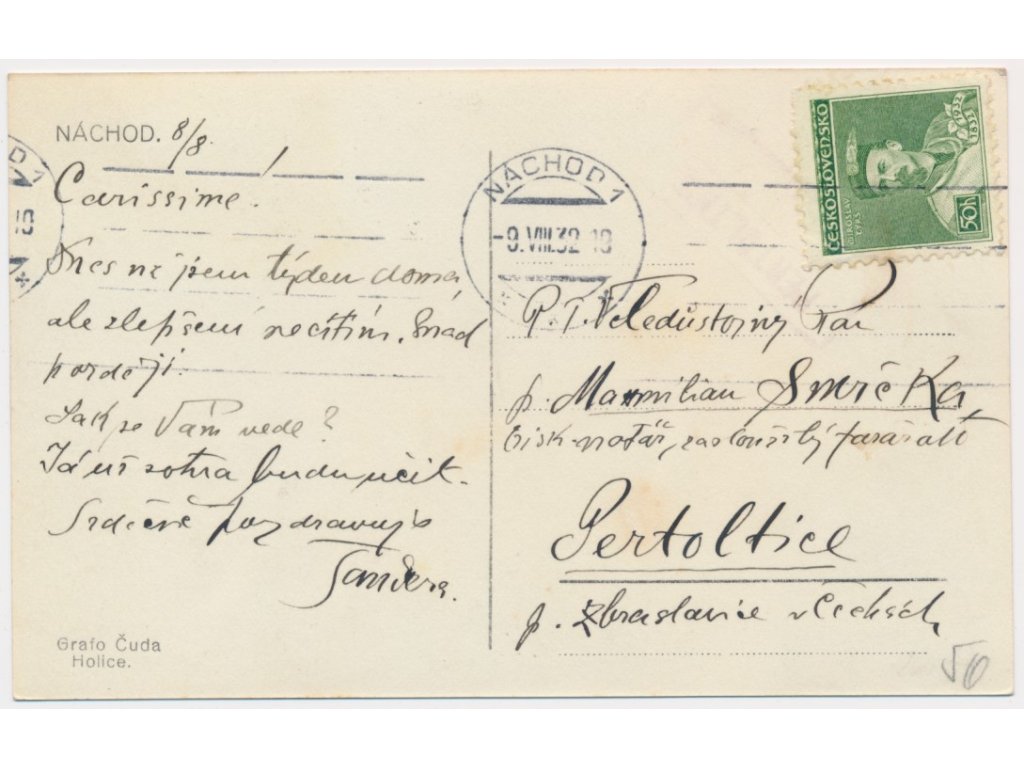 NÁCHOD. 8/8.
Carissime!
Dnes už jsem týden doma,
ale zlepšení necítím. Snad
později.
Jak se Vám vede?
Já už zotra budu učit.
Srdečně pozdravuje
Grafo Čuda
Holice.
NÁCHOD 1
-9.VIII.32 18
ČESKOSLOVENSKO
MIROSLAV
TYRŠ
1832 1932
50h
P. T. Veledůstojný Pan
p. Maxmilian Smrčka,
bisk. notář, zasloužilý farář atd
Pertoltice
p. Zbraslavice v Čechách
50